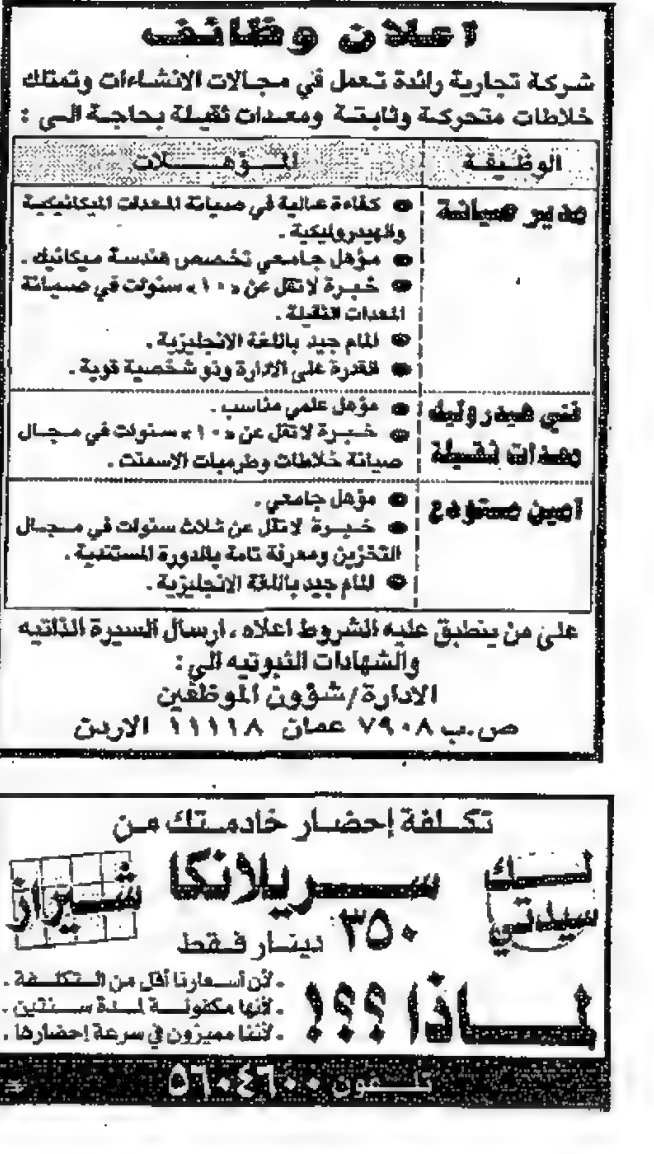 اعلان وظائف
شركة تجارية رائدة تعمل في مجالات الانشاءات وتمتلك
خلاطات متحركة وثابتة ومعدات ثقيلة بحاجة الى :
الوظيفة
المؤهلات
مدير صيانة
كفاءة عالية في صيانة المعدات الميكانيكية
والهيدروليكية .
مؤهل جامعي تخصص هندسة ميكانيك .
خبرة لاتقل عن «١٠» سنوات في صيانة
المعدات الثقيلة .
المام جيد باللغة الانجليزية .
القدرة على الادارة وذو شخصية قوية .
فني هيدروليك
معدات ثقيلة
مؤهل علمي مناسب .
خبرة لاتقل عن «١٠» سنوات في مجال
صيانة خلاطات وطرمبات الاسمنت .
أمين مستودع
مؤهل جامعي .
خبرة لاتقل عن ثلاث سنوات في مجال
التخزين ومعرفة تامة بالدورة المستندية .
المام جيد باللغة الانجليزية .
على من ينطبق عليه الشروط اعلاه ، ارسال السيرة الذاتيه
والشهادات الثبوتيه الى :
الادارة/شؤون الموظفين
ص.ب ٧٩٠٨ عمان ١١١١٨ الاردن
تكلفة إحضار خادمتك من
لك
سيدتي
سريلانكا
شيراز
٣٥٠ دينار فقط
لماذا ؟؟؟!
- لأن أسعارنا أقل من التكلفة .
- لأنها مكفولة لمدة سنتين .
- لأننا مميزون في سرعة إحضارها .
تلفون ٥٦٠٤٦٠٠